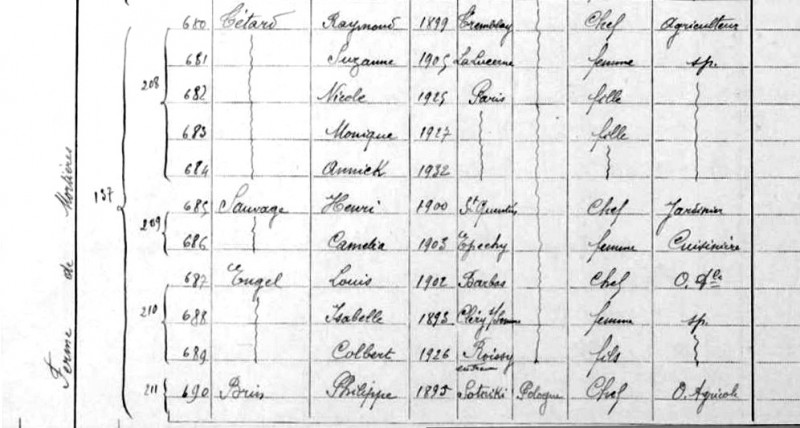 680 Tétard Raymond 1899 Tremblay Chef Agriculteur
681 Suzanne 1905 La Lucerne femme sp.
208 682 Nicole 1925 Paris fille
683 Monique 1927 fille
684 Annick 1932
Ferme de Mortières 137
685 Sauvage Henri 1900 St Quentin Chef Jardinier
209
686 Camelia 1903 Epechy femme Cuisinière
687 Engel Louis 1902 Barbas Chef O. Ale
210 688 Isabelle 1893 Cléry s/Somme femme sp.
689 Colbert 1926 Roissy en France fils
211 690 Bris Philippe 1895 Pologne Chef O. Agricole